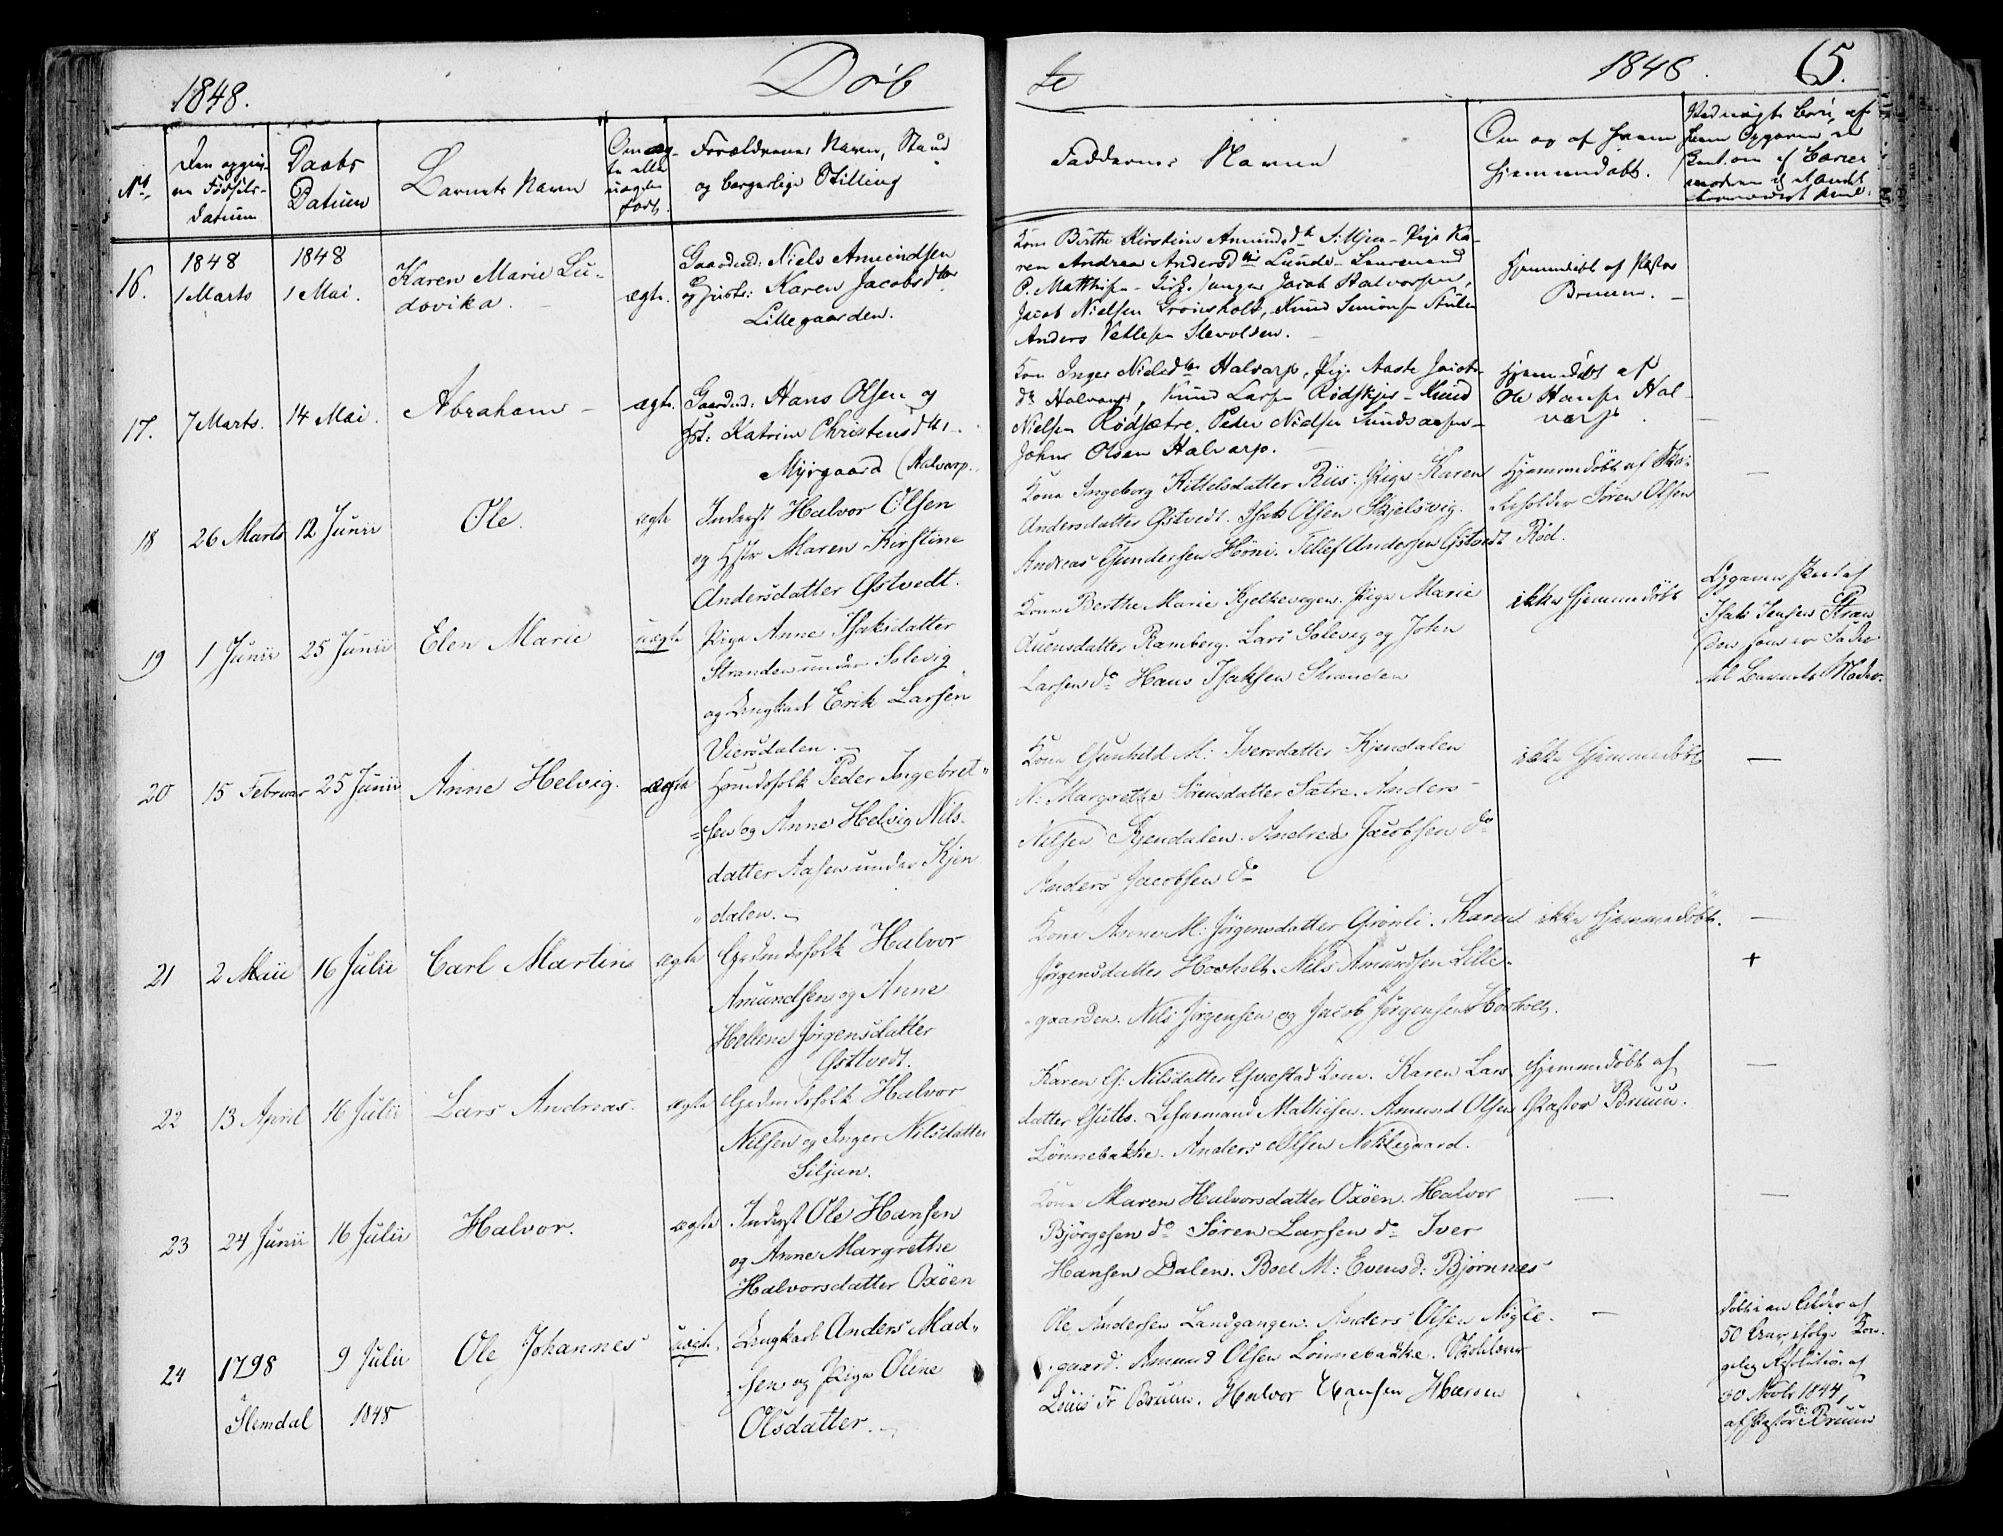 1848.
Döb
te
1848.
65.
No
Den opgiv-
ne Fødsels-
datum
Daabs
Datum
Barnets Navn
Om æg-
te eller
uægte
født.
Forældrenes Navn, Stand
og borgerlige Stilling
Faddernes Navne
Om og af hvem
hjemmedøbt.
16.
1848
1 Marts
1848
1 Mai.
Karen Marie Lu-
dovika.
ægte.
Gaardmd: Niels Amundsen
og Hustr: Karen Jacobsdtr
Lillegaarden.
Kone Berthe Kirstine Amundsdtr Siljen - Pige Ka-
ren Andrea Andersdtr Lunde - Lensmand
P. Mathisen - Kirkesanger Jacob Halvorsen,
Jacob Nielsen Gronsholt, Knud Simonsen
Anders Vetlesen Slevolden.
Hjemmedöbt af Pastor
Bruun.
17.
7 Marts.
14 Mai.
Abraham -
ægte.
Gaardmd: Hans Olsen og
Hst: Katrine Christensdtr
Myrgaard (Halvarp.
Kone Inger Nielsdtr Halvarp, Pige Aaste Jacobs-
dtr Halvarp, Knud Larsen Rödskjer - Knud
Nielsen Rödsætre, Peder Nielsen Sundsaasen -
John Olsen Halvarp.
Hjemmedöbt af
Ole Hansen Hal-
varp.
18
26 Marts
12 Junii
Ole.
ægte
Inderst Halvor Olsen
og Hstr Maren Kirstine
Andersdatter Østvedt.
Kone Ingeborg Kittelsdatter Riis. Pige Karen
Andersdatter Østvedt. Isak Olsen Skjelsvig.
Andreas Gundersen Hörni. Tellef Andersen Østvedt
Hjemmedøbt af Sko-
leholder Søren Olsen
Röd.
19
1 Junii
25 Junii
Elen Marie
uægte
Pige Anne Isaksdatter
Stranden under Solevig
og Ungkarl Erik Larsen
Viersdalen.
Kone Berthe Marie Kjelkevegen. Pige Marie
Auensdatter Ramberg. Lars Solevig og John
Larsen do Hans Isaksen Stranden
ikke hjemmedøbt
Opgaven skeet af
Isak Jensen Stran
den som er Fader
til Barnets Moder.
20
15 Februar
25 Junii
Anne Helvig.
ægte
Huusfolk Peder Ingebret"
=sen og Anne Helvig Nils-
datter Aasen under Kjen
"dalen.
Kone Gunhild M: Iversdatter Kjendalen
N: Margrethe Sörensdatter Sætre. Anders
Nilsen Kjendalen. Andreas Jacobsen do
Anders Jacobsen do
ikke hjemmedøbt
21
2 Maii
16 Julii
Carl Martin
ægte
Gaardmdsfolk Halvor
Amundsen og Anne
Heltene Jørgensdatter
Østtvedt.
Kone Anne M. Jørgensdatter Grönli. Karen
Jørgensdatter Hovholt. Nils Amundsen Lille-
gaarden. Nils Jørgensen og Jacob Jørgensen Hovholt.
ikke hjemmedöbt.
+
22
13 April
16 Julii
Lars Andreas.
ægte
Gaardmdsfolk Halvor
Nilsen og Inger Nilsdatter
Siljan.
Karen G: Nilsdatter Gvæstad Kone. Karen Lars
datter. Lehnsmand Mathisen. Amund Olsen
Lönnebakke. Anders Olsen Nøklegaard.
hjemmedöbt af
Pastor Bruun.
23
24 Junii
16 Julii
Halvor.
ægte
Inderst Ole Hansen
og Anne Margrethe
Halvorsdatter Oxöen
Kone Maren Halvorsdatter Oxöen. Halvor
Björgesen do Sören Larsen do Iver
Hansen Dalen. Boel M: Evensd: Björnnes
24
1798
Slemdal
9 Julii
1848
Ole Johannes
uægt.
Ungkarl Anders Mad"
sen og Pige Oline
Olsdatter.
Ole Andersen Landgangen. Anders Olsen Nögle-
gaard. Amund Olsen Lönnebakke. Skoleholder
Louis Fr Bruun. Halvor Hansen
Döbt i en Alder af
50 Aar, ifölge Kon-
gelig Resolution af
30 Novbr 1844,
af Pastor Bruun